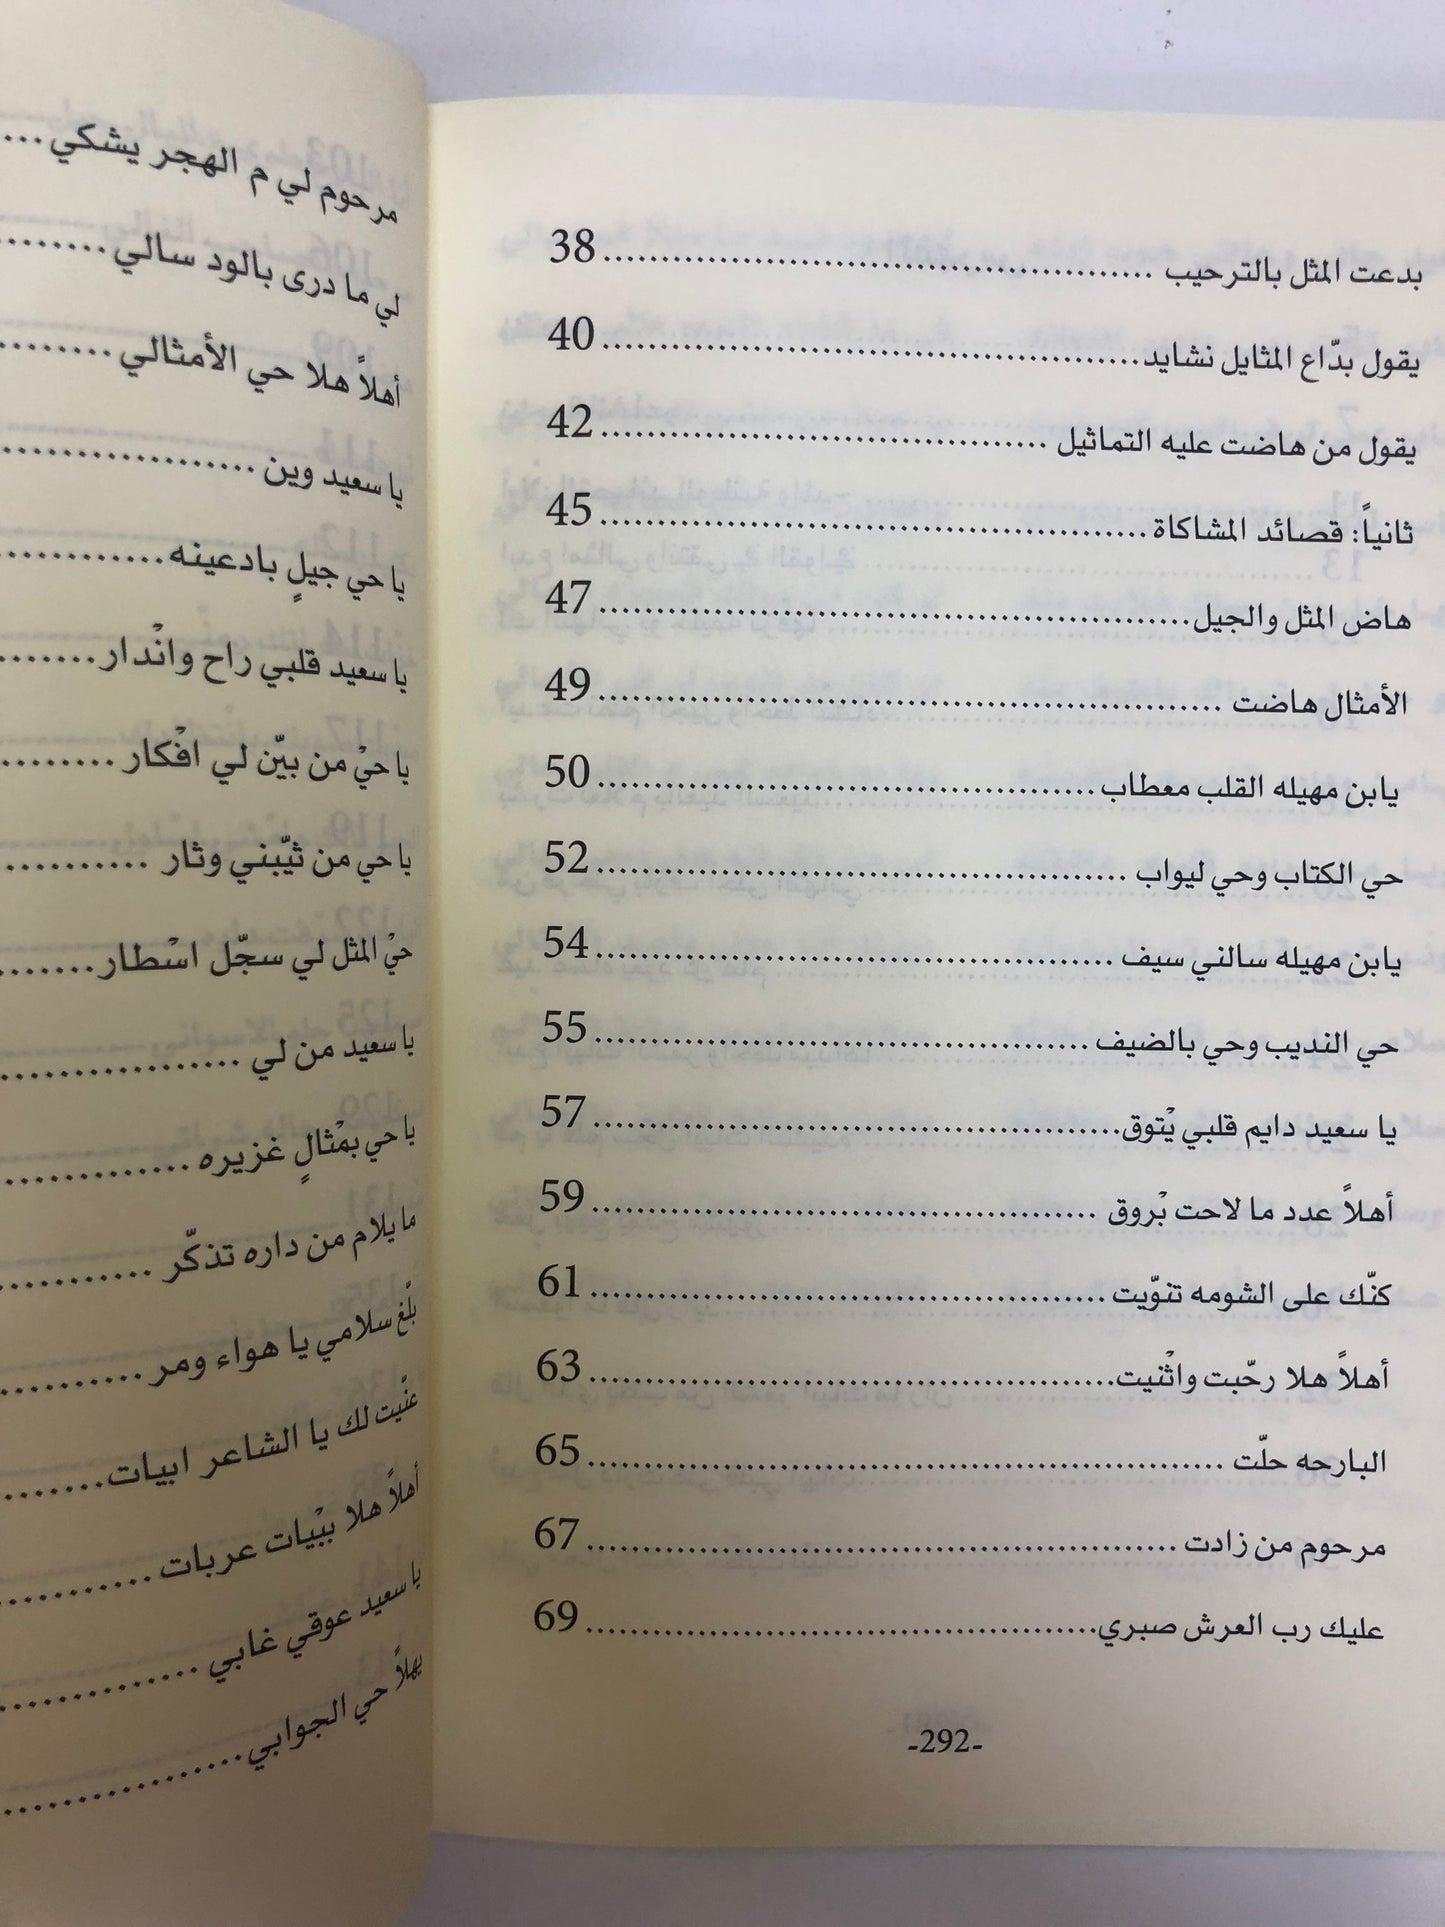 بدعت المثل بالترحيب ........ 38
يقول بدّاع المثايل نشايد ........ 40
يقول من هاضت عليه التماثيل ........ 42
ثانياً: قصائد المشاكاة ........ 45
هاض المثل والجيل ........ 47
الأمثال هاضت ........ 49
يابن مهيله القلب معطاب ........ 50
حي الكتاب وحي ليواب ........ 52
يابن مهيله سالني سيف ........ 54
حي النديب وحي بالضيف ........ 55
يا سعيد دايم قلبي يْتوق ........ 57
أهلاً عدد ما لاحت بْروق ........ 59
كنّك على الشومه تنوّيت ........ 61
أهلاً هلا رحّبت واثْنيت ........ 63
البارحه حلّت ........ 65
مرحوم من زادت ........ 67
عليك رب العرش صبري ........ 69
-292-
مرحوم لي م الهجر يشكي ........
لي ما درى بالود سالي ........
أهلاً هلا حي الأمثالي ........
يا سعيد وين ........
يا حي جيلٍ بادعينه ........
يا سعيد قلبي راح وانْدار ........
يا حيْ من بيّن لي افْكار ........
يا حي من ثيّبني وثار ........
حيْ المثل لي سجّل اسْطار ........
يا سعيد من لي ........
يا حي بمْثالٍ غزيره ........
ما يلام من داره تذكّر ........
بلّغ سلامي يا هواء ومر ........
غنّيت لك يا الشاعر ابيات ........
أهلاً هلا ببْيات عربات ........
يا سعيد عوقي غابي ........
يهلاً حي الجوابي ........